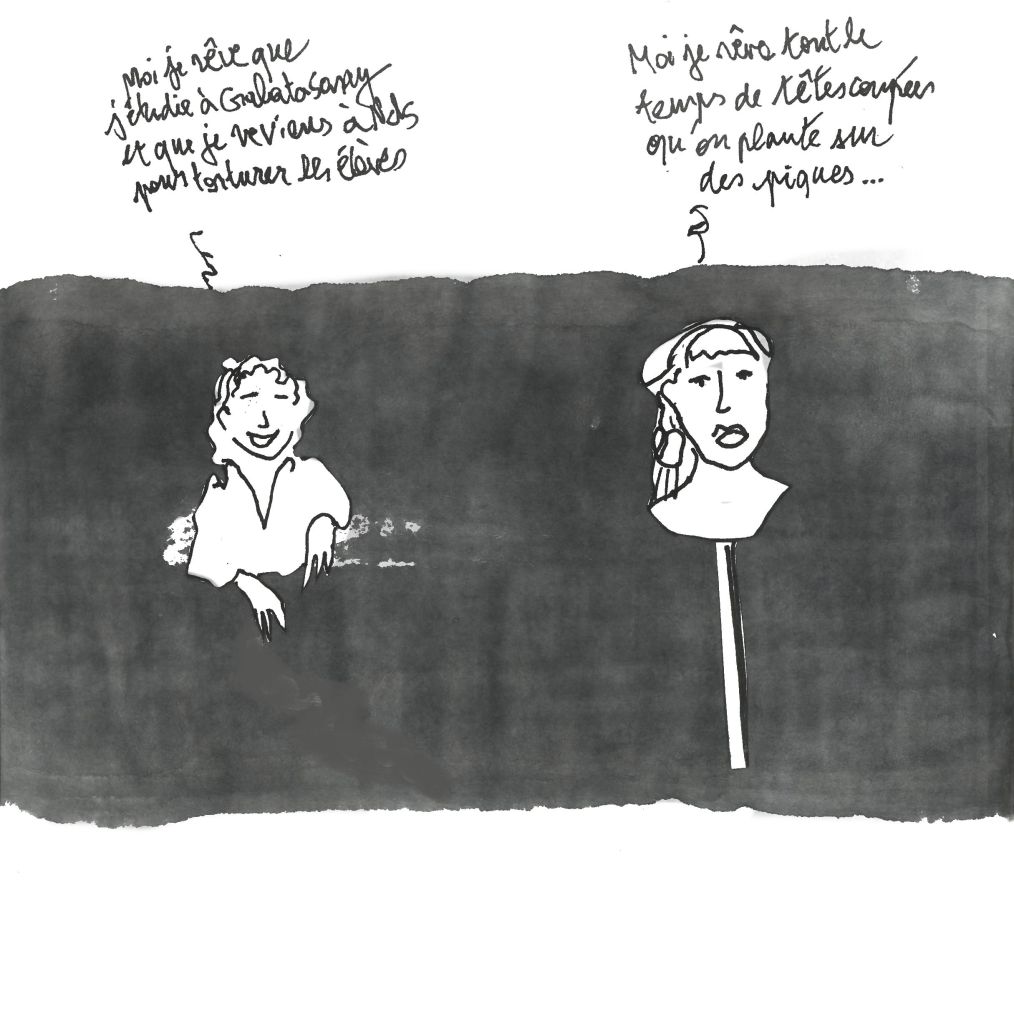 Moi je rêve que
j'étudie à Galatasaray
et que je reviens à NDS
pour torturer les élèves
Moi je rêve tout le
temps de têtes coupées
qu'on plante sur
des piques...